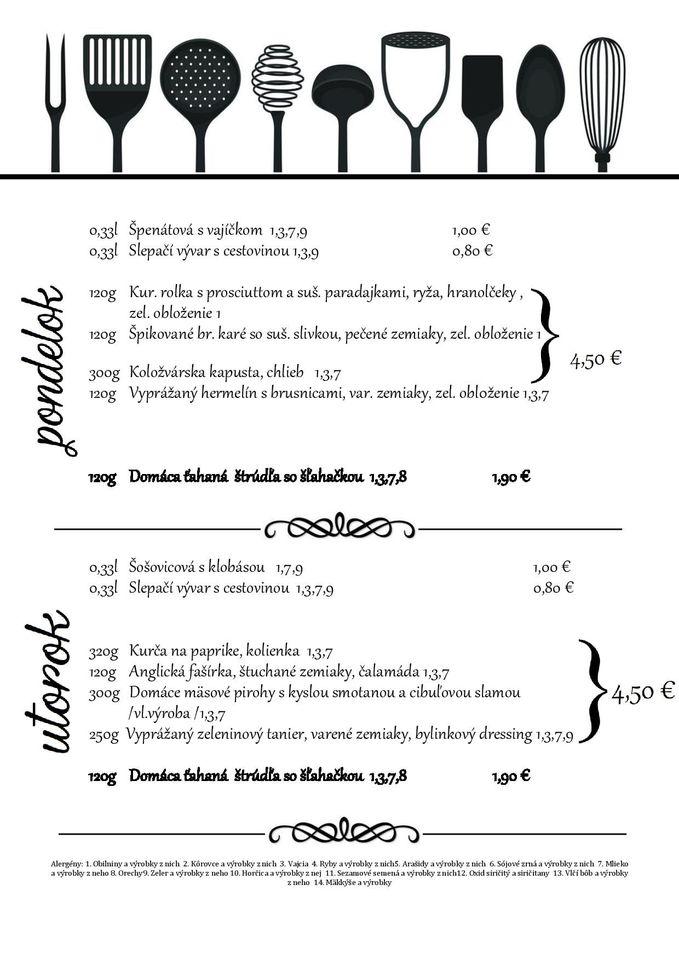 pondelok
0,33l Špenátová s vajíčkom 1,3,7,9 1,00 €
0,33l Slepačí vývar s cestovinou 1,3,9 0,80 €
120g Kur. rolka s prosciuttom a suš. paradajkami, ryža, hranolčeky ,
zel. obloženie 1
120g Špikované br. karé so suš. slivkou, pečené zemiaky, zel. obloženie 1
4,50 €
300g Koložvárska kapusta, chlieb 1,3,7
120g Vyprážaný hermelín s brusnicami, var. zemiaky, zel. obloženie 1,3,7
120g Domáca ťahaná štrúdľa so šľahačkou 1,3,7,8 1,90 €
utorok
0,33l Šošovicová s klobásou 1,7,9 1,00 €
0,33l Slepačí vývar s cestovinou 1,3,7,9 0,80 €
320g Kurča na paprike, kolienka 1,3,7
120g Anglická fašírka, štuchané zemiaky, čalamáda 1,3,7
300g Domáce mäsové pirohy s kyslou smotanou a cibuľovou slamou
4,50 €
/vl.výroba /1,3,7
250g Vyprážaný zeleninový tanier, varené zemiaky, bylinkový dressing 1,3,7,9
120g Domáca ťahaná štrúdľa so šľahačkou 1,3,7,8 1,90 €
Alergény: 1. Obilniny a výrobky z nich 2. Kôrovce a výrobky z nich 3. Vajcia 4. Ryby a výrobky z nich5. Arašidy a výrobky z nich 6. Sójové zrná a výrobky z nich 7. Mlieko
a výrobky z neho 8. Orechy9. Zeler a výrobky z neho 10. Horčica a výrobky z nej 11. Sezamové semená a výrobky z nich12. Oxid siričitý a siričitany 13. Vlčí bôb a výrobky
z neho 14. Mäkkýše a výrobky